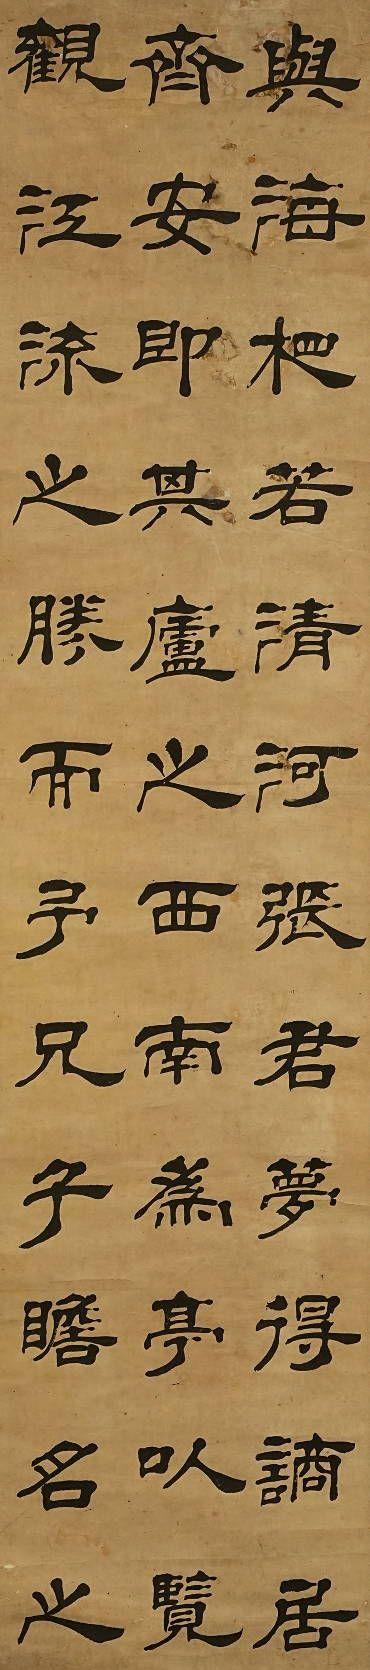 與海相若清河張君夢得謫居
齊安即其廬之西南爲亭以覽
觀江流之勝而予兄子瞻名之